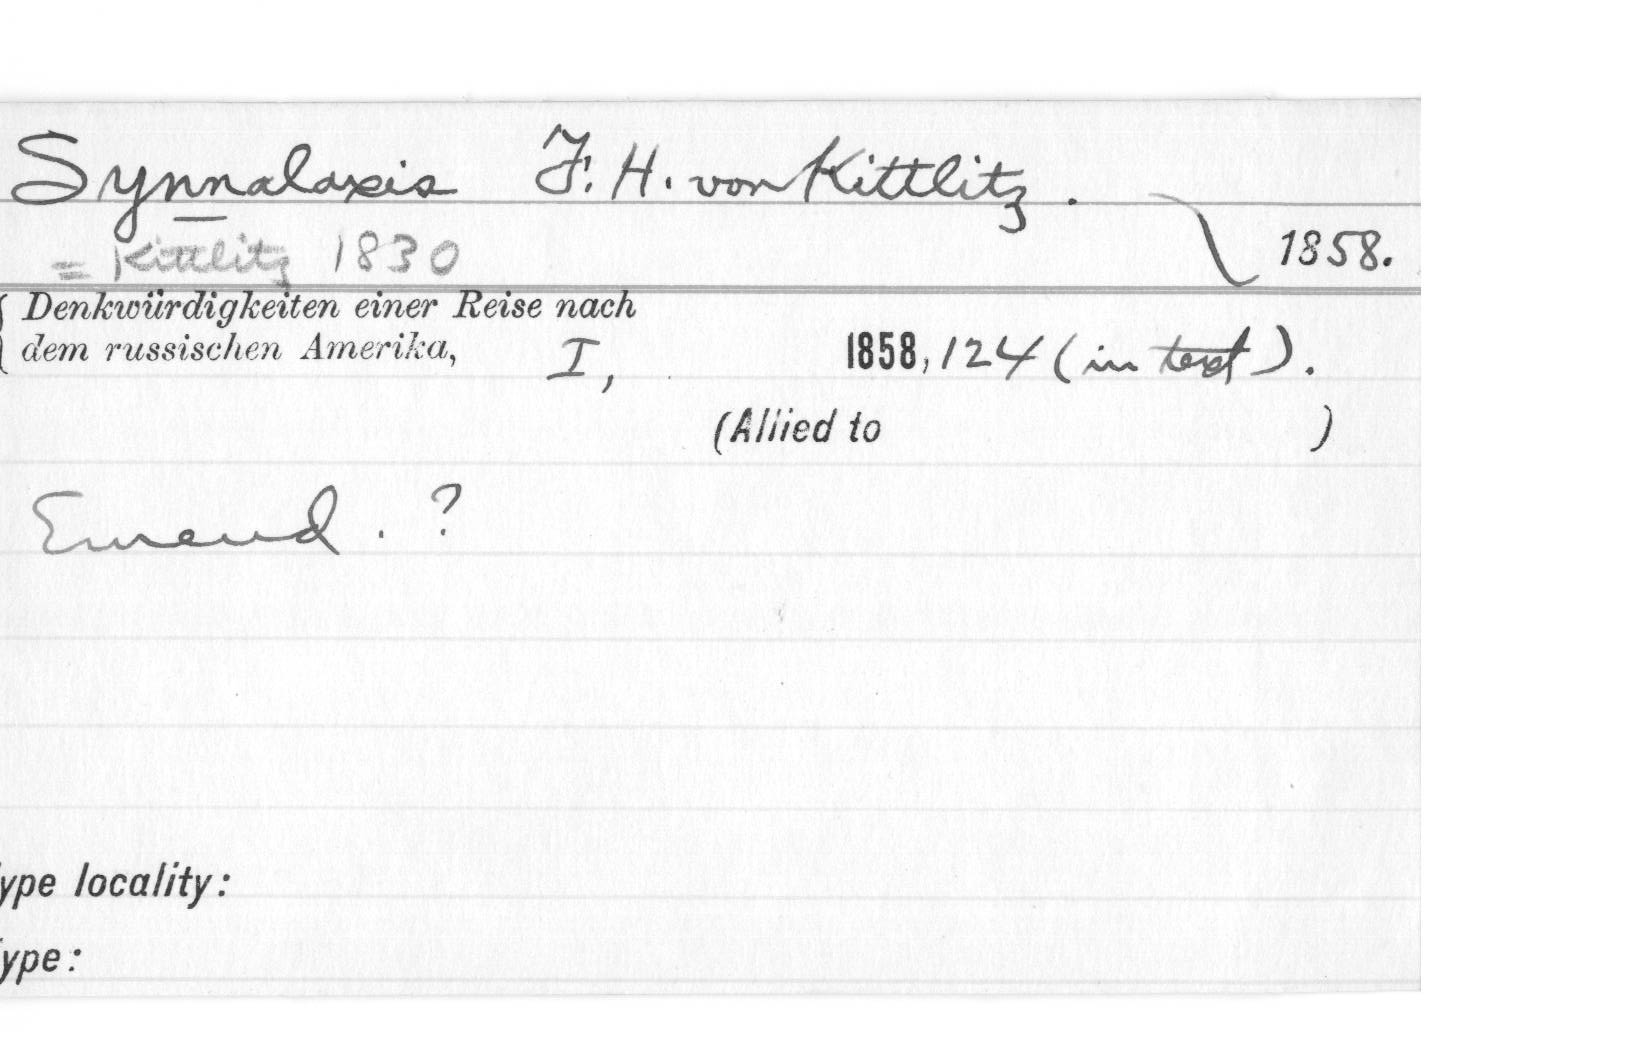 Synnalaxis F. H. von Kittlitz.
= Kittlitz 1830 1858.
Denkwürdigkeiten einer Reise nach
dem russischen Amerika, I, 1858, 124 (in text).
(Allied to )
Emend. ?
ype locality:
ype: